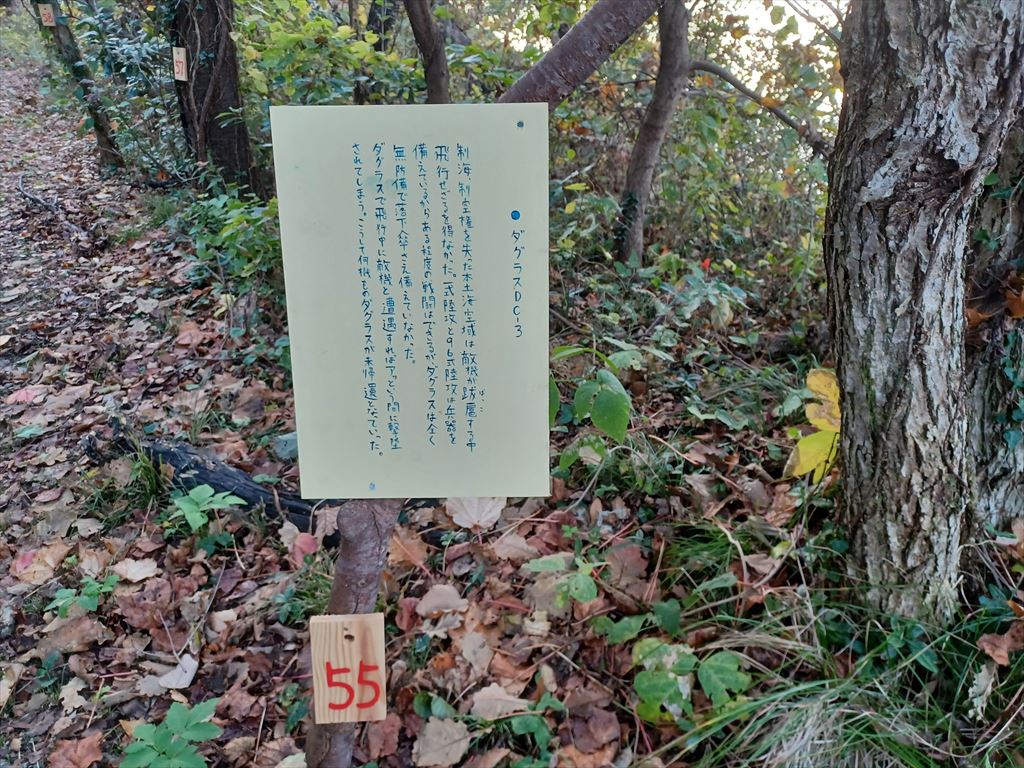 ●ダグラスDC-3
制海、制空権を失った本土海空域は敵機が跋扈する中
ばっこ
飛行せざるを得なかった。一式陸攻と96式陸攻は兵器を
備えているからある程度の戦闘はできるがダグラスは全く
無防備で落下傘さえ備えていなかった。
ダグラスで飛行中に敵機と遭遇すればアッという間に撃墜
されてしまう。こうして何機ものダグラスが未帰還となっていった。
55
57
58